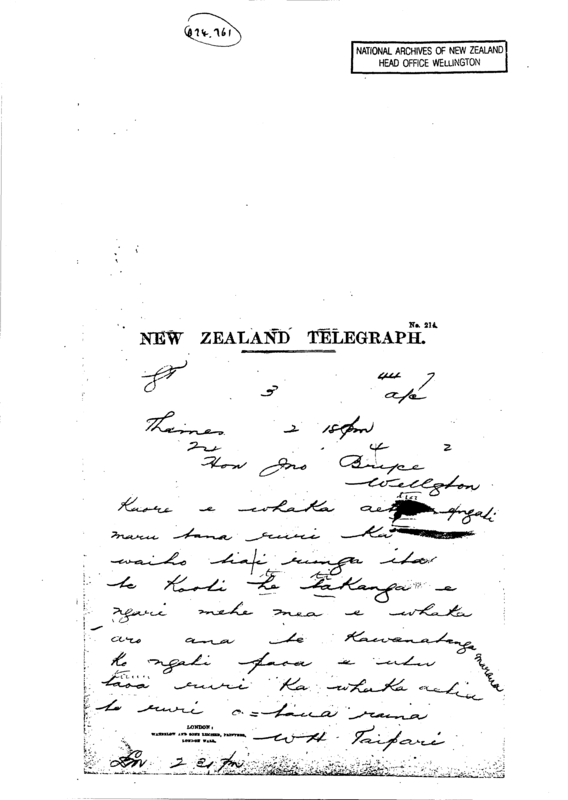 A24.761
NATIONAL ARCHIVES OF NEW ZEALAND
HEAD OFFICE WELLINGTON
No. 214.
NEW ZEALAND TELEGRAPH.
44 7
3
Thames 2 15 pm
4 2
Hon Jno
Wellgton
Kaore e whaka ngati
maru tana ruuri Ka
waiho runga
te Kooti he takanga e
ngari mehe mea e whaka
aro ana te Kawanatanga
Ko ngati paoa e utu marama
taua ruuri Ka whaka aetia
te ruuri o = taua raina
W H Taipari
LONDON:
WATERLOW AND SONS LIMITED, PRINTERS,
LONDON WALL.
2 21 pm